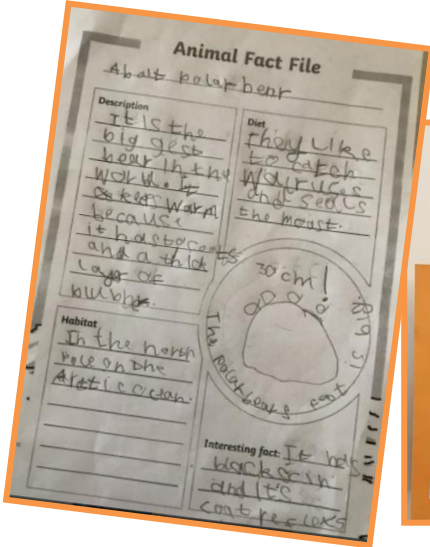 Animal Fact File
Abalt polar bear
Description
It is the
big gest
bear in the
world. It
keeps warm
because
it has to coats
and a thick
layer of
blubber.
Diet
They like
to catch
walruses
and seals
the moast.
30 cm!
The polar bears foot is big.
Habitat
In the north
Pole on the
Arctic ocean.
Interesting fact: It has
black scin
and It's
coat reflects